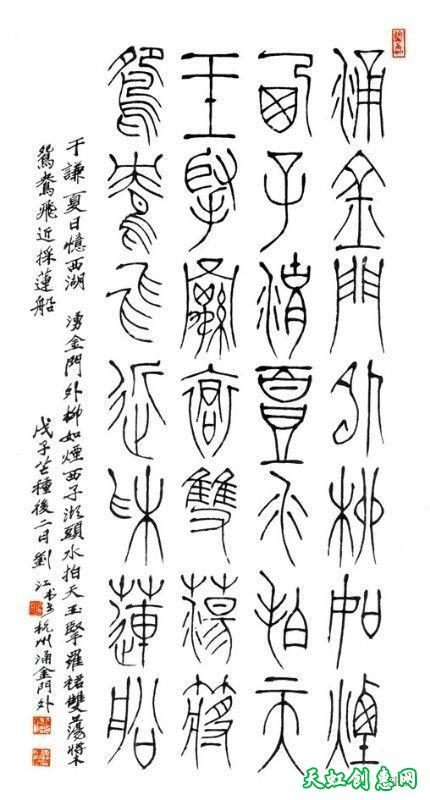 涌金門外柳如煙
西子湖頭水拍天
玉掔羅裙雙蕩槳
鴛鴦飛近采蓮船
于謙夏日憶西湖 湧金門外柳如煙西子湖頭水拍天玉掔羅裙雙蕩槳
鴛鴦飛近採蓮船
戊子芒種後二日劉江書於杭州涌金門外
天虹创意网